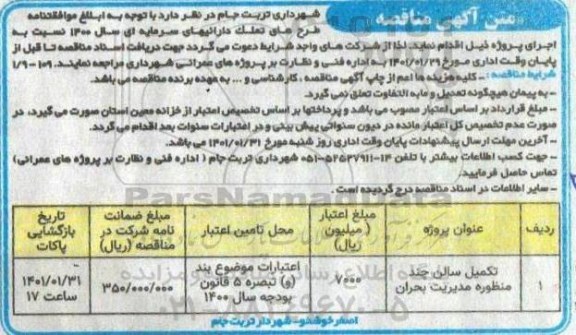 متن آگهی مناقصه
شهرداری تربت جام در نظر دارد با توجه به ابلاغ موافقتنامه
طرح های تملک دارائیهای سرمایه ای سال ۱۴۰۰ نسبت به
اجرای پروژه ذیل اقدام نماید. لذا از شرکت های واجد شرایط دعوت می گردد جهت دریافت اسناد مناقصه تا قبل از
پایان وقت اداری مورخ ۱۴۰۱/۰۱/۲۹ به اداره فنی و نظارت بر پروژه های عمرانی شهرداری مراجعه نمایند. ۱/۹-۱۰۹
شرایط مناقصه: - کلیه هزینه ها اعم از چاپ آگهی مناقصه ، کارشناسی و ... به عهده برنده مناقصه می باشد.
- به پیمان هیچگونه تعدیل و مابه التفاوت تعلق نمی گیرد.
- مبلغ قرارداد بر اساس اعتبار مصوب می باشد و پرداختها بر اساس تخصیص اعتبار از خزانه معین استان صورت می گیرد، در
صورت عدم تخصیص کل اعتبار مانده در دیون سنواتی پیش بینی و در اعتبارات سنوات بعد اقدام می گردد.
- آخرین مهلت ارسال پیشنهادات پایان وقت اداری روز شنبه مورخ ۱۴۰۱/۰۱/۳۱ می باشد.
- جهت کسب اطلاعات بیشتر با تلفن ۱۴-۵۲۵۳۷۹۱۱-۰۵۱ شهرداری تربت جام ( اداره فنی و نظارت بر پروژه های عمرانی)
تماس حاصل فرمایید.
- سایر اطلاعات در اسناد مناقصه درج گردیده است .
ParsNamadData
ردیف
عنوان پروژه
مبلغ اعتبار
( میلیون
ریال)
محل تامین اعتبار
مبلغ ضمانت
نامه شرکت در
مناقصه (ریال)
تاریخ
بازگشایی
پاکات
۱
تکمیل سالن چند
منظوره مدیریت بحران
۷۰۰۰
اعتبارات موضوع بند
(و) تبصره ۵ قانون
بودجه سال ۱۴۰۰
۳۵۰/۰۰۰/۰۰۰
۱۴۰۱/۰۱/۳۱
ساعت ۱۷
اصغر خوشخو - شهردار تربت جام